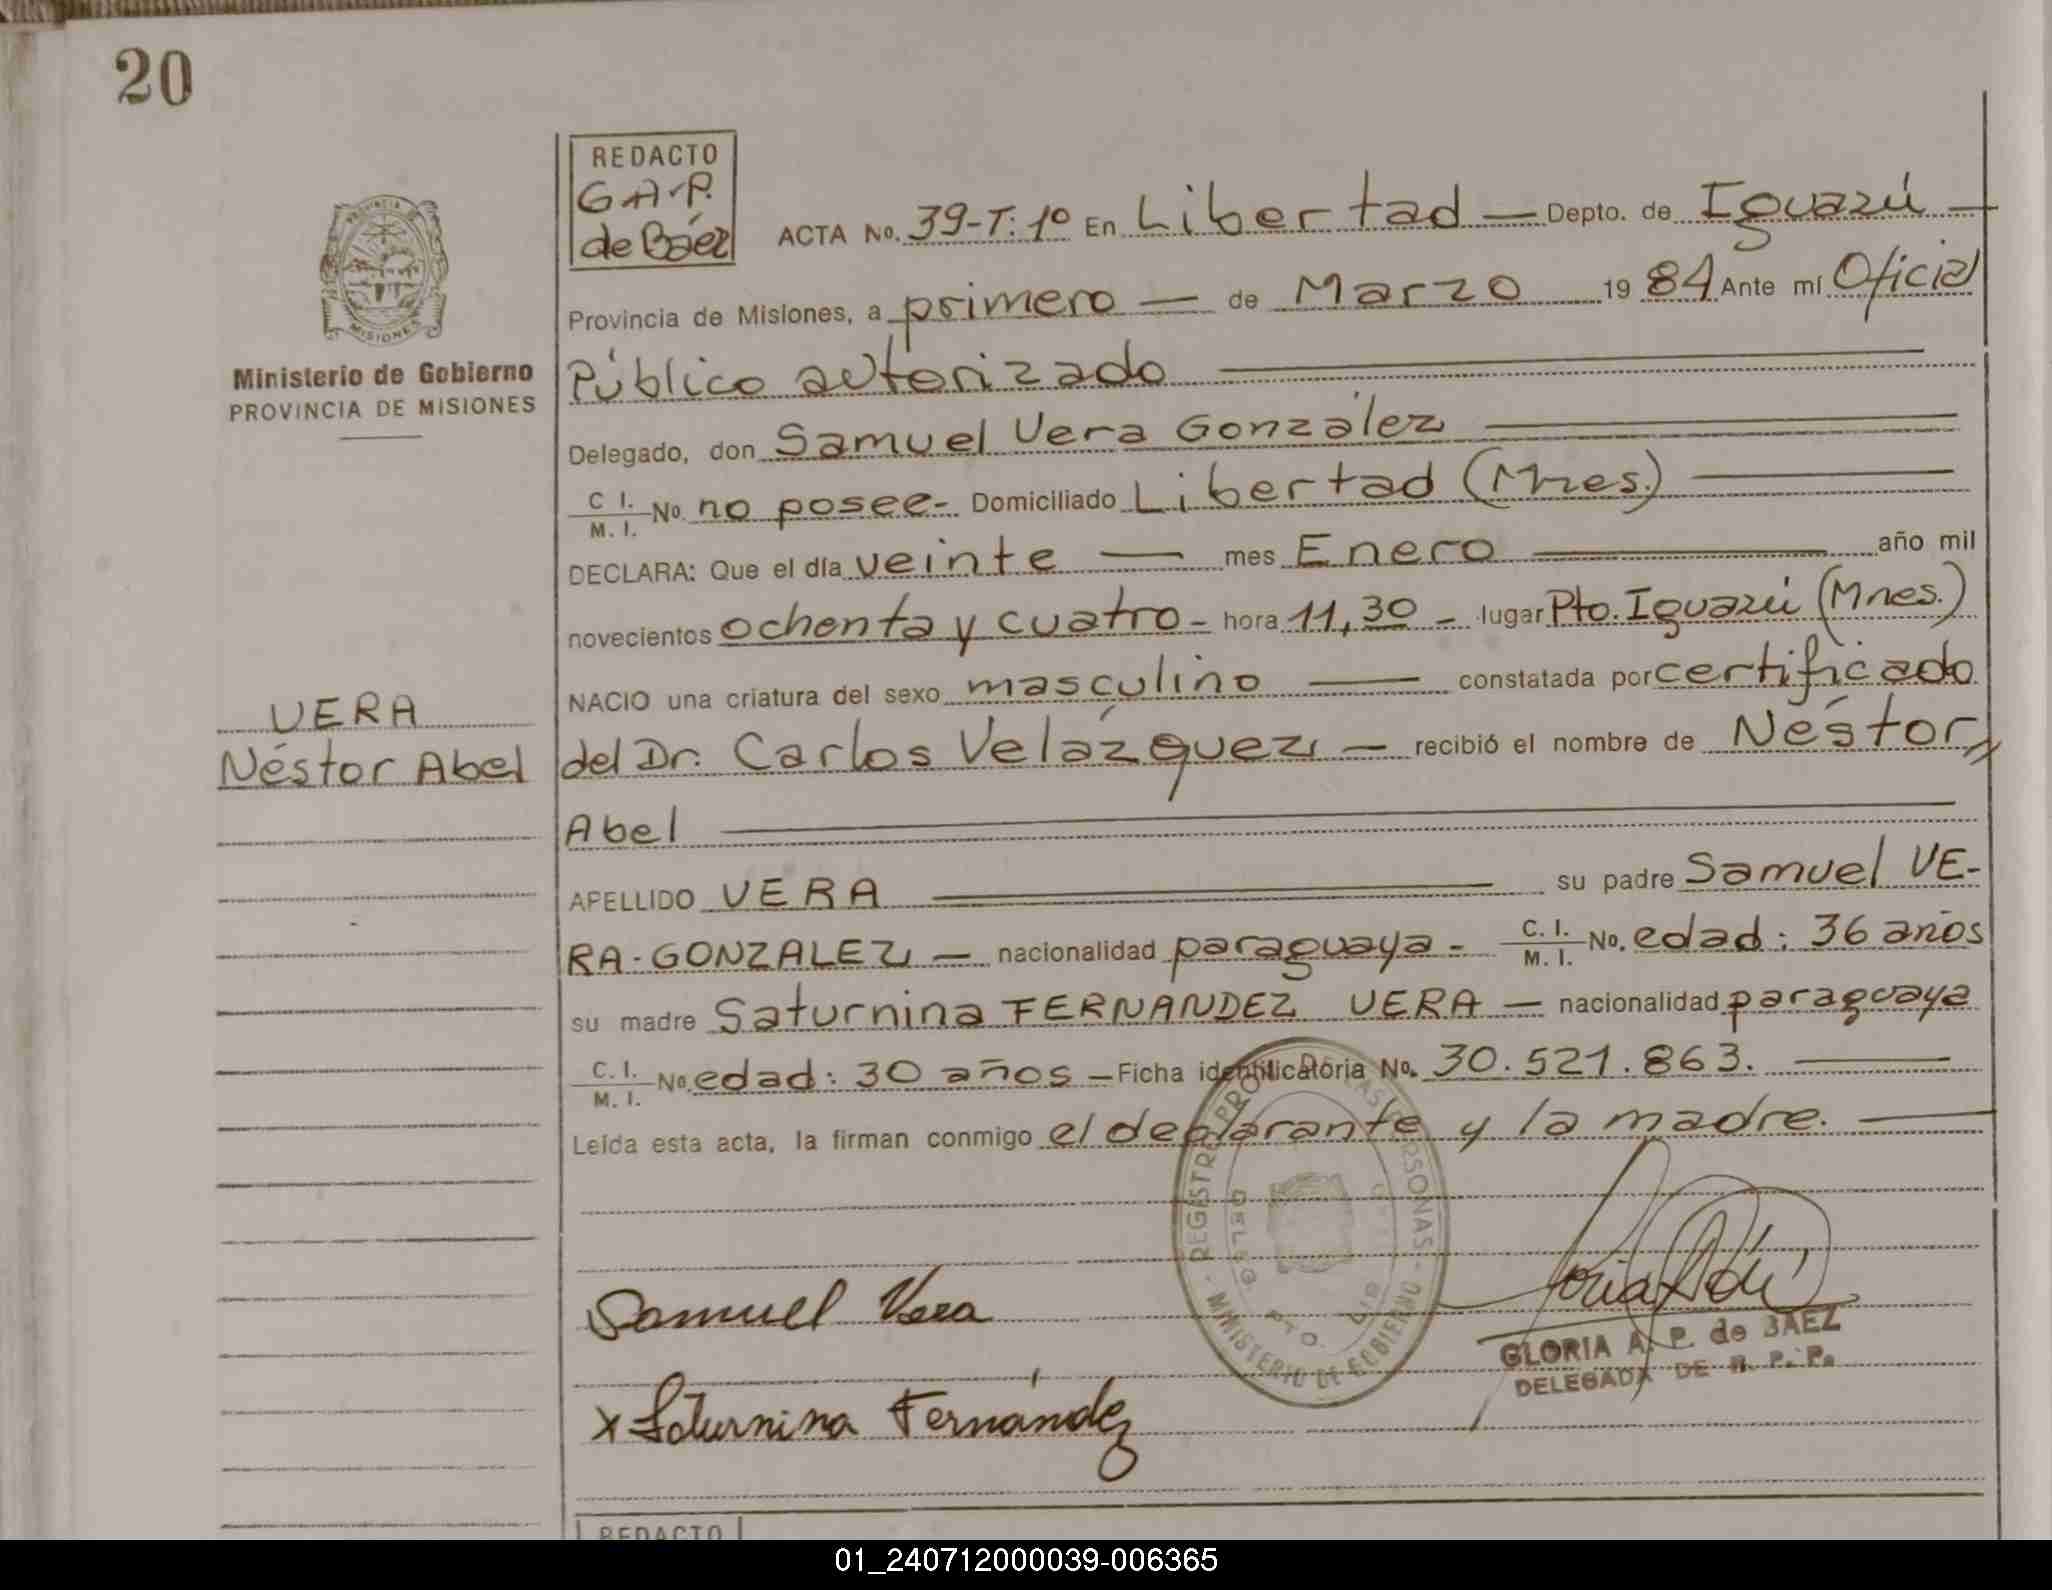 20
REDACTO
G.A.P.
de Báez
ACTA No. 39-T:1º En Libertad — Depto. de Iguazú —
Provincia de Misiones, a primero — de Marzo 1984 Ante mí Oficial
Público autorizado
Ministerio de Gobierno
PROVINCIA DE MISIONES
Delegado, don Samuel Vera González
C I. / M. I. No. no posee - Domiciliado Libertad (Mnes.)
DECLARA: Que el día veinte — mes Enero — año mil
novecientos ochenta y cuatro - hora 11,30 - lugar Pto. Iguazú (Mnes.)
NACIO una criatura del sexo masculino — constatada por certificado
VERA
Néstor Abel
del Dr. Carlos Velázquez — recibió el nombre de Néstor
Abel
APELLIDO VERA — su padre Samuel VE-
RA-GONZALEZ — nacionalidad paraguaya - C. I. / M. I. No. edad: 36 años
su madre Saturnina FERNANDEZ VERA — nacionalidad paraguaya
C. I. / M. I. No. edad: 30 años — Ficha identificatoria No. 30.521.863.
Leída esta acta, la firman conmigo el declarante y la madre.
REGISTRO PROV. DE LAS PERSONAS - MINISTERIO DE GOBIERNO
DELEG. PTO. LIB
Samuel Vera
GLORIA A. P. de BAEZ
DELEGADA DE R. P. P.
x Saturnina Fernández
REDACTO
01_240712000039-006365